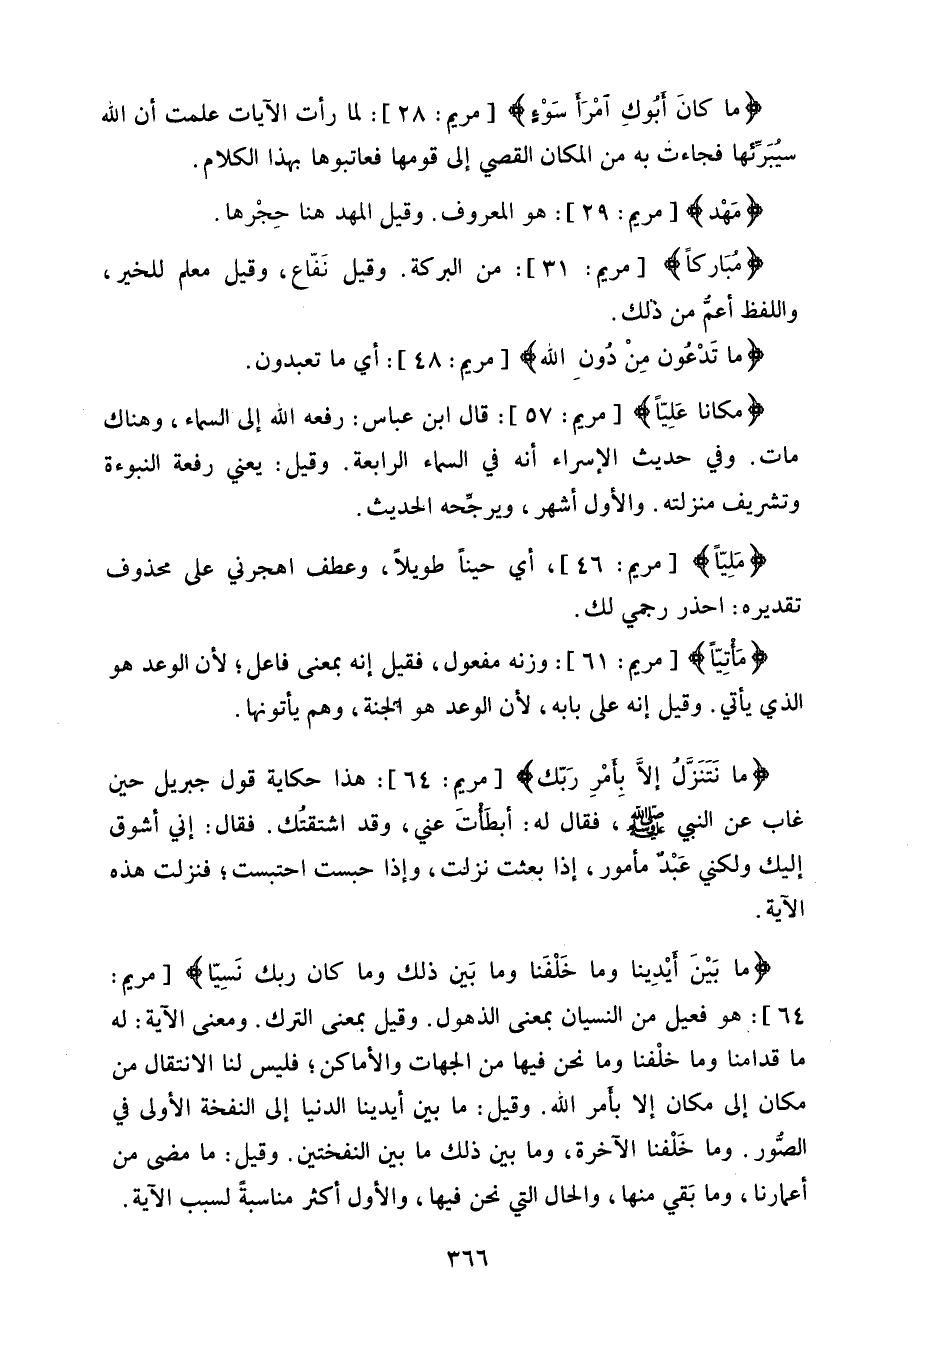 ﴿ما كانَ أَبُوكِ آمْرَأَ سَوْءٍ﴾ [مريم: ٢٨]: لما رأت الآيات علمت أن الله
سيُبَرِّئها فجاءت به من المكان القصي إلى قومها فعاتبوها بهذا الكلام.
﴿مَهْد﴾ [مريم: ٢٩]: هو المعروف. وقيل المهد هنا حِجْرها.
﴿مُبَاركاً﴾ [مريم: ٣١]: من البركة. وقيل نَفّاع، وقيل معلم للخير،
واللفظ أعمُّ من ذلك.
﴿ما تَدْعُون مِنْ دُونِ الله﴾ [مريم: ٤٨]: أي ما تعبدون.
﴿مكانا عَلِيّاً﴾ [مريم: ٥٧]: قال ابن عباس: رفعه الله إلى السماء، وهناك
مات. وفي حديث الإسراء أنه في السماء الرابعة. وقيل: يعني رفعة النبوءة
وتشريف منزلته. والأول أشهر، ويرجِّحه الحديث.
﴿مَلِيّاً﴾ [مريم: ٤٦]، أي حيناً طويلاً، وعطف اهجرني على محذوف
تقديره: احذر رجمي لك.
﴿مَأْتِيّاً﴾ [مريم: ٦١]: وزنه مفعول، فقيل إنه بمعنى فاعل؛ لأن الوعد هو
الذي يأتي. وقيل إنه على بابه، لأن الوعد هو الجنة، وهم يأتونها.
﴿ما نَتَنَزَّلُ إلاَّ بِأَمْرِ رَبّك﴾ [مريم: ٦٤]: هذا حكاية قول جبريل حين
غاب عن النبي ﷺ، فقال له: أبطَأْتَ عني، وقد اشتقتُك. فقال: إني أشوق
إليك ولكني عَبْدٌ مأمور، إذا بعثت نزلت، وإذا حبست احتبست؛ فنزلت هذه
الآية.
﴿ما بَيْنَ أَيْدِينا وما خَلْفَنا وما بَين ذلك وما كان ربك نَسِيّا﴾ [مريم:
٦٤]: هو فعيل من النسيان بمعنى الذهول. وقيل بمعنى الترك. ومعنى الآية: له
ما قدامنا وما خلْفنا وما نحن فيها من الجهات والأماكن؛ فليس لنا الانتقال من
مكان إلى مكان إلا بأَمر الله. وقيل: ما بين أيدينا الدنيا إلى النفخة الأولى في
الصُّور. وما خَلْفنا الآخرة، وما بين ذلك ما بين النفختين. وقيل: ما مضى من
أعمارنا، وما بَقي منها، والحال التي نحن فيها، والأول أكثر مناسبةً لسبب الآية.
٣٦٦